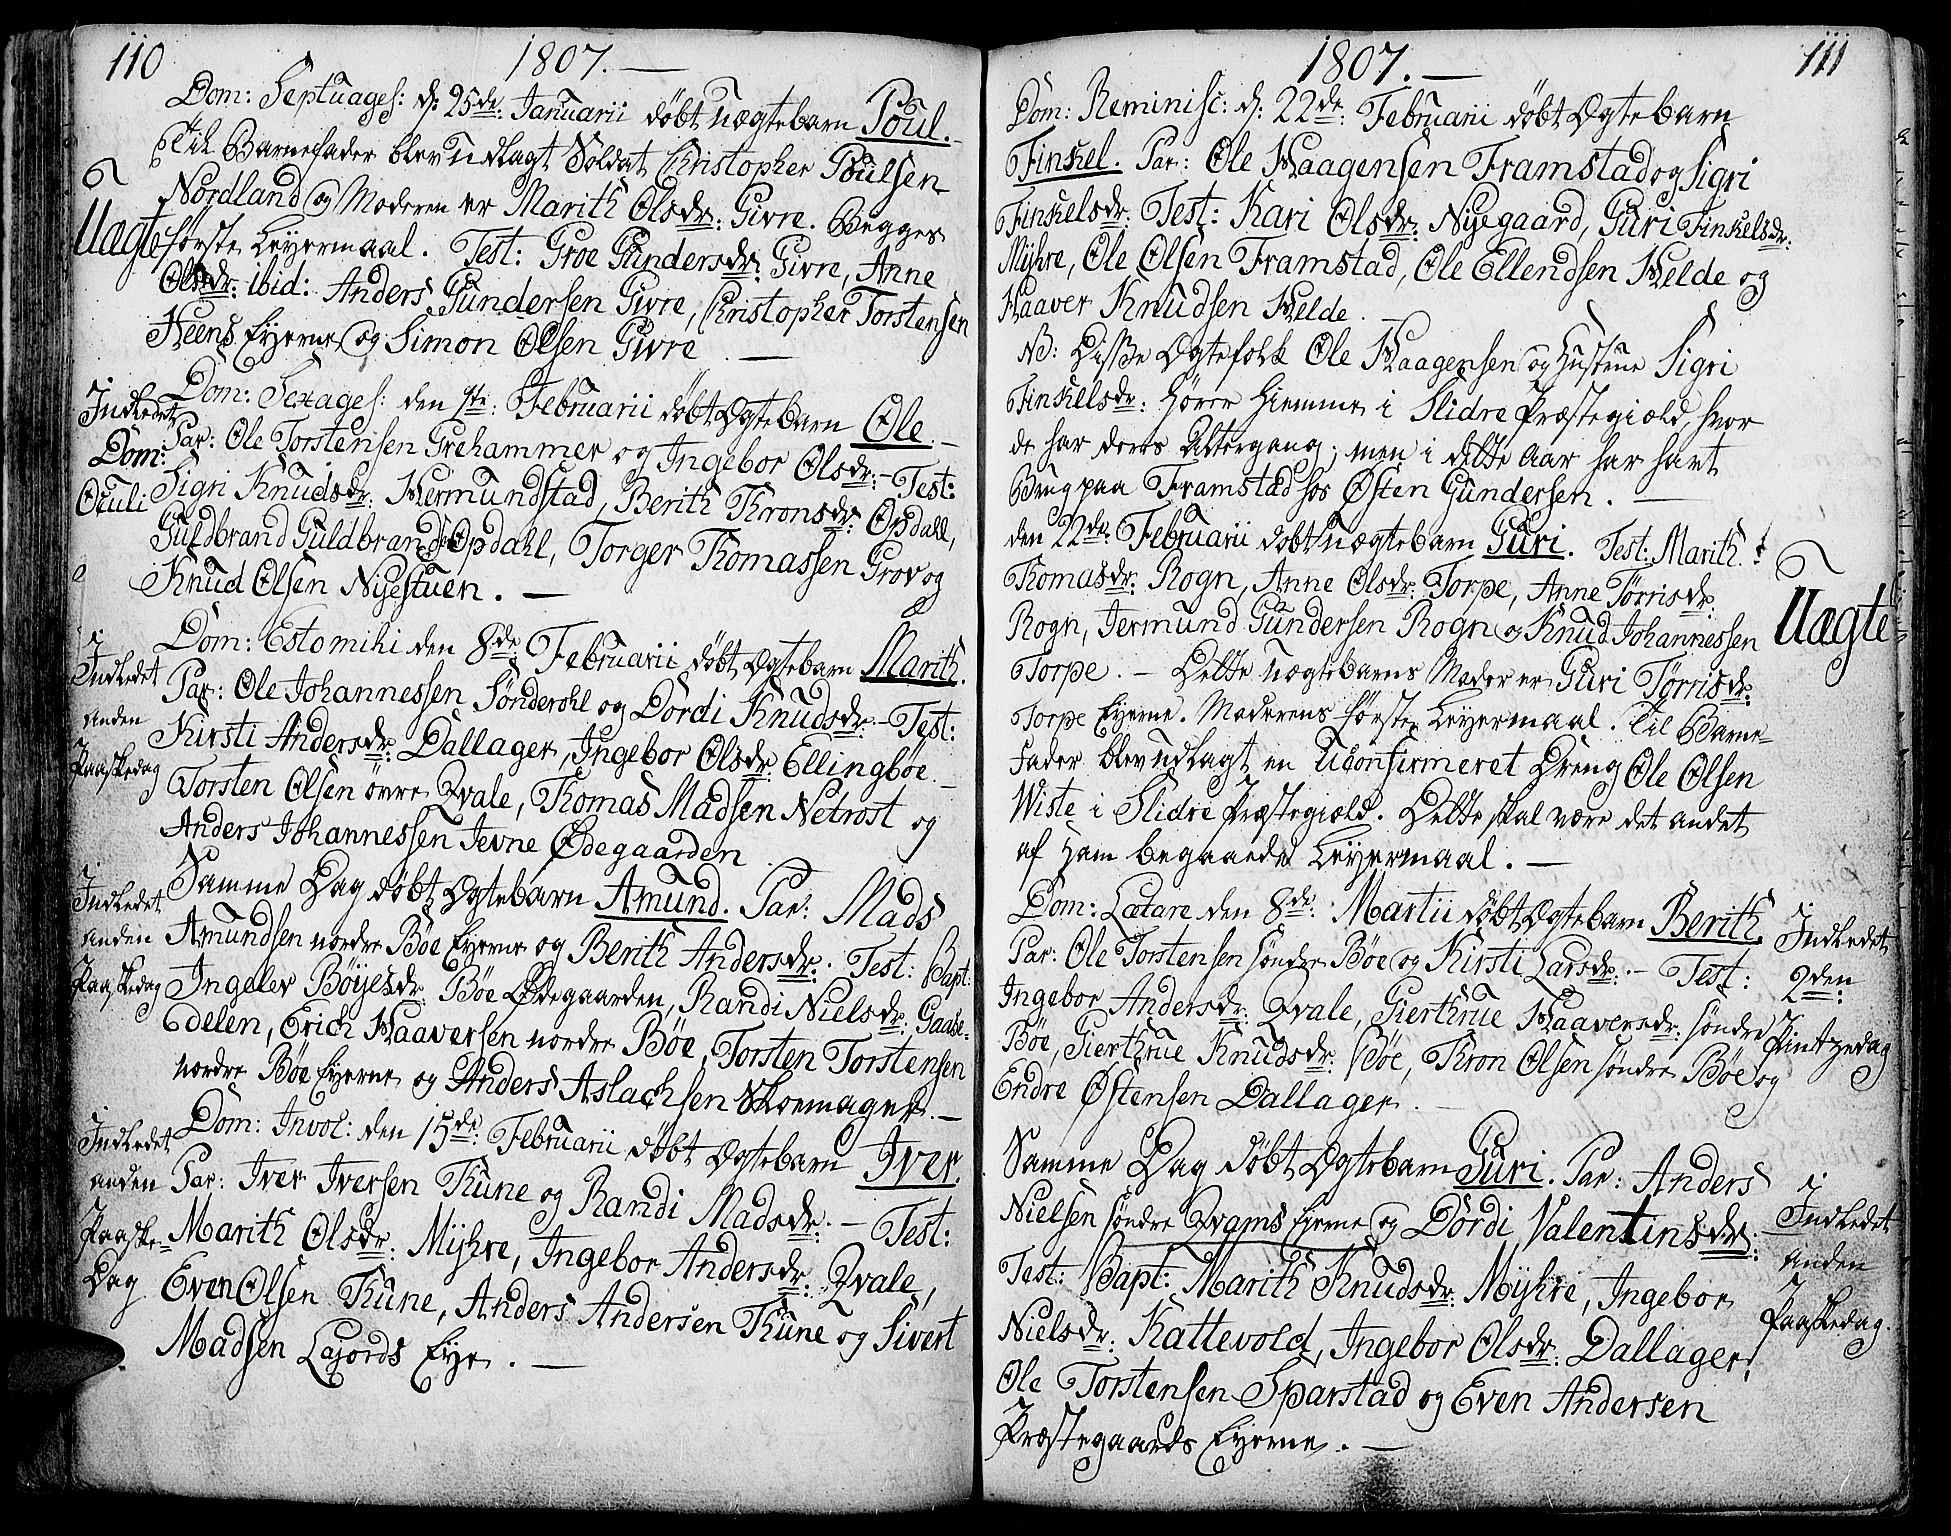 110
1807. —
Dom: Septuages: d: 25de: Januarii døbt uægtebarn Poul. -
Til Barnefader blev udlagt Soldat Christopher Poulsen
Nordland og Moderen er Marith Olsdr: Givre. Begges
Uægte
første Leyermaal. Test: Groe Gundersdr: Givre, Anne
Olsdr: ibid: Anders Gundersen Givre, Christopher Torstensen
Heens Eyerne og Simon Olsen Givre. —
Dom: Sexages: den 1ste: Februarii døbt Ægtebarn Ole. -
Indledet
Dom:
Oculi
Par: Ole Torstensen Grehammer og Ingebor Olsdr: - Test:
Sigri Knudsdr: Hermundstad, Berith Thronsdr: Opdahl,
Guldbrand Guldbrandsen Opdahl, Torger Thomassen Grov og
Knud Olsen Nyestuen. —
Dom: Estomihi den 8de Februarii døbt Ægtebarn Marith.
Indledet
anden
Paaskedag
Par: Ole Johannessen Sønderohl og Dordi Knudsdr: - Test:
Kirsti Andersdr: Dallager, Ingebor Olsdr: Ellingbøe -
Torsten Olsen øvre Qvale, Thomas Madsen Netrost og
Anders Johannessen Jevne Ødegaarden.
Samme Dag døbt Ægtebarn Amund. Par: Mads
Indledet
anden
Paaskedag
Amundsen nordre Bøe Eyerne og Berith Andersdr: Test: Bapt:
Ingelev Bøyesdr: Bøe Ødegaarden, Randi Nielsdr: Gaase-
Edelen, Erich Haaversen nordre Bøe, Torsten Torstensen
nordre Bøe Eyerne og Anders Aslachsen Skoemager. —
Dom: Invoc: den 15de: Februarii døbt Ægtebarn Iver.
Indledet
anden
Paaske-
Dag
Par: Iver Iversen Thune og Randi Madsdr: - Test:
Marith Olsdr: Myhre, Ingebor Andersdr: Qvale,
Even Olsen Thune, Anders Andersen Thune og Sivert
Madsen Lajords Eye. —
1807. —
111
Dom: Reminisc: d: 22de: Februarii døbt Ægtebarn
Finkel. Par: Ole Haagensen Framstad og Sigri
Finkelsdr: Test: Kari Olsdr: Nyegaard, Guri Finkelsdr:
Myhre, Ole Olsen Framstad, Ole Ellendsen Helde og
Haaver Knudsen Helde. —
NB: Disse Ægtefolk Ole Haagensen og Hustrue Sigri
Finkelsdr: hører hiemme i Slidre Præstegiæld, hvor
de har deres Altergang; men i dette Aar har havt
Brug paa Framstad hos Østen Gundersen. —
den 22de: Februarii døbt uægtebarn Guri. Test: Marith
Thomasdr: Rogn, Anne Olsdr: Torpe, Anne Tørrisdr:
Uægte
Rogn, Jermund Gundersen Rogn og Knud Johannessen
Torpe. - Dette uægtebarns Moder er Guri Tørrisdr:
Torpe Eyerne. Moderens første Leyermaal. Til Barne-
Fader blev udlagt en Uconfirmeret Dreng Ole Olsen
Wiste i Slidre Præstegiæld. Dette skal være det andet
af ham begaaede Leyermaal. —
Dom: Lætare den 8de: Martii døbt Ægtebarn Berith.
Indledet
2den:
Pintzedag
Par: Ole Torstensen søndre Bøe og Kirsti Larsdr: - Test:
Ingebor Andersdr: Qvale, Gierthrue Haaversdr: søndre
Bøe, Gierthrue Knudsdr: Bøe, Thron Olsen søndre Bøe og
Endre Østensen Dallager. —
Samme Dag døbt Ægtebarn Guri. Par: Anders
Indledet
anden
Paaskedag.
Nielsen søndre Qvams Eyerne og Dordi Valentinsdr:
Test: Bapt: Marith Knudsdr: Myhre, Ingebor
Nielsdr: Kattevold, Ingebor Olsdr: Dallager,
Ole Torstensen Sparstad og Even Andersen
Præstegaards Eyerne. —